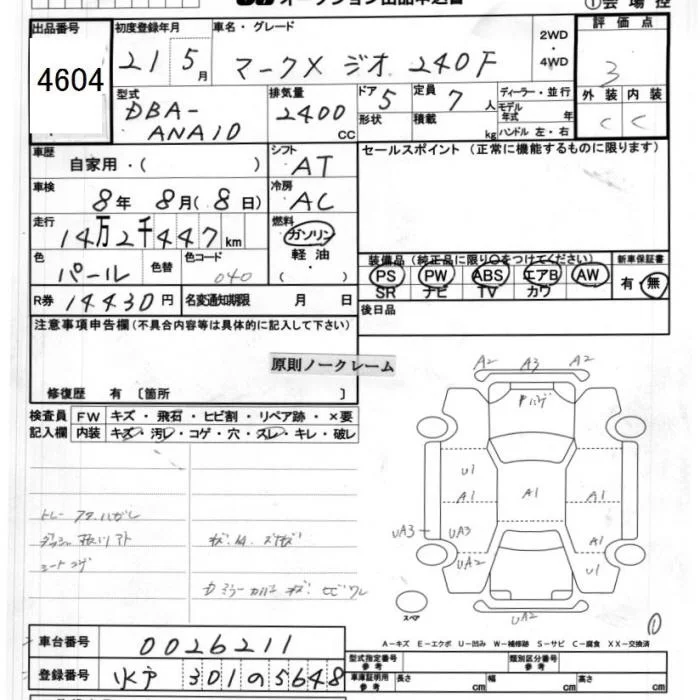 オークション出品申込書
①会場控
出品番号 初度登録年月 車名・グレード 2WD・4WD 評価点
4604 21 5月 マークX ジオ 240F 3
型式 排気量 ドア 5 定員 7人 ディーラー・並行 外装 内装
DBA-ANA10 2400CC 形状 積載 kg モデル年式 年 C C
ハンドル 左・右
車歴 自家用・( ) シフト AT セールスポイント (正常に機能するものに限ります)
車検 8年 8月(8日) 冷房 AC
走行 14万2千447km 燃料 ガソリン
軽油・( )
色 パール 色替 色コード 040
装備品 (純正品に限り○をつけてください) 新車保証書
PS PW ABS エアB AW 有・無
SR ナビ TV カワ
R券 14430円 名変通知期限 月 日 後日品
注意事項申告欄 (不具合内容等は具体的に記入して下さい)
原則ノークレーム
修復歴 有 〔箇所 〕
検査員記入欄 FW キズ・飛石・ヒビ割・リペア跡・×要
内装 キズ・汚レ・コゲ・穴・スレ・キレ・破レ
A2 A3 A2
U1
A1 A1 A1
UA3 UA3 A1
UA2 U1
UA2
シートコゲ
スペア
①
A-キズ E-エクボ U-凹み W-補修跡 S-サビ C-腐食 XX-交換済
車台番号 0026211
型式指定番号 参考 類別区分番号 参考
登録番号 水戸 301 の 5648
車庫証明用 参考 長さ cm 幅 cm 高さ cm